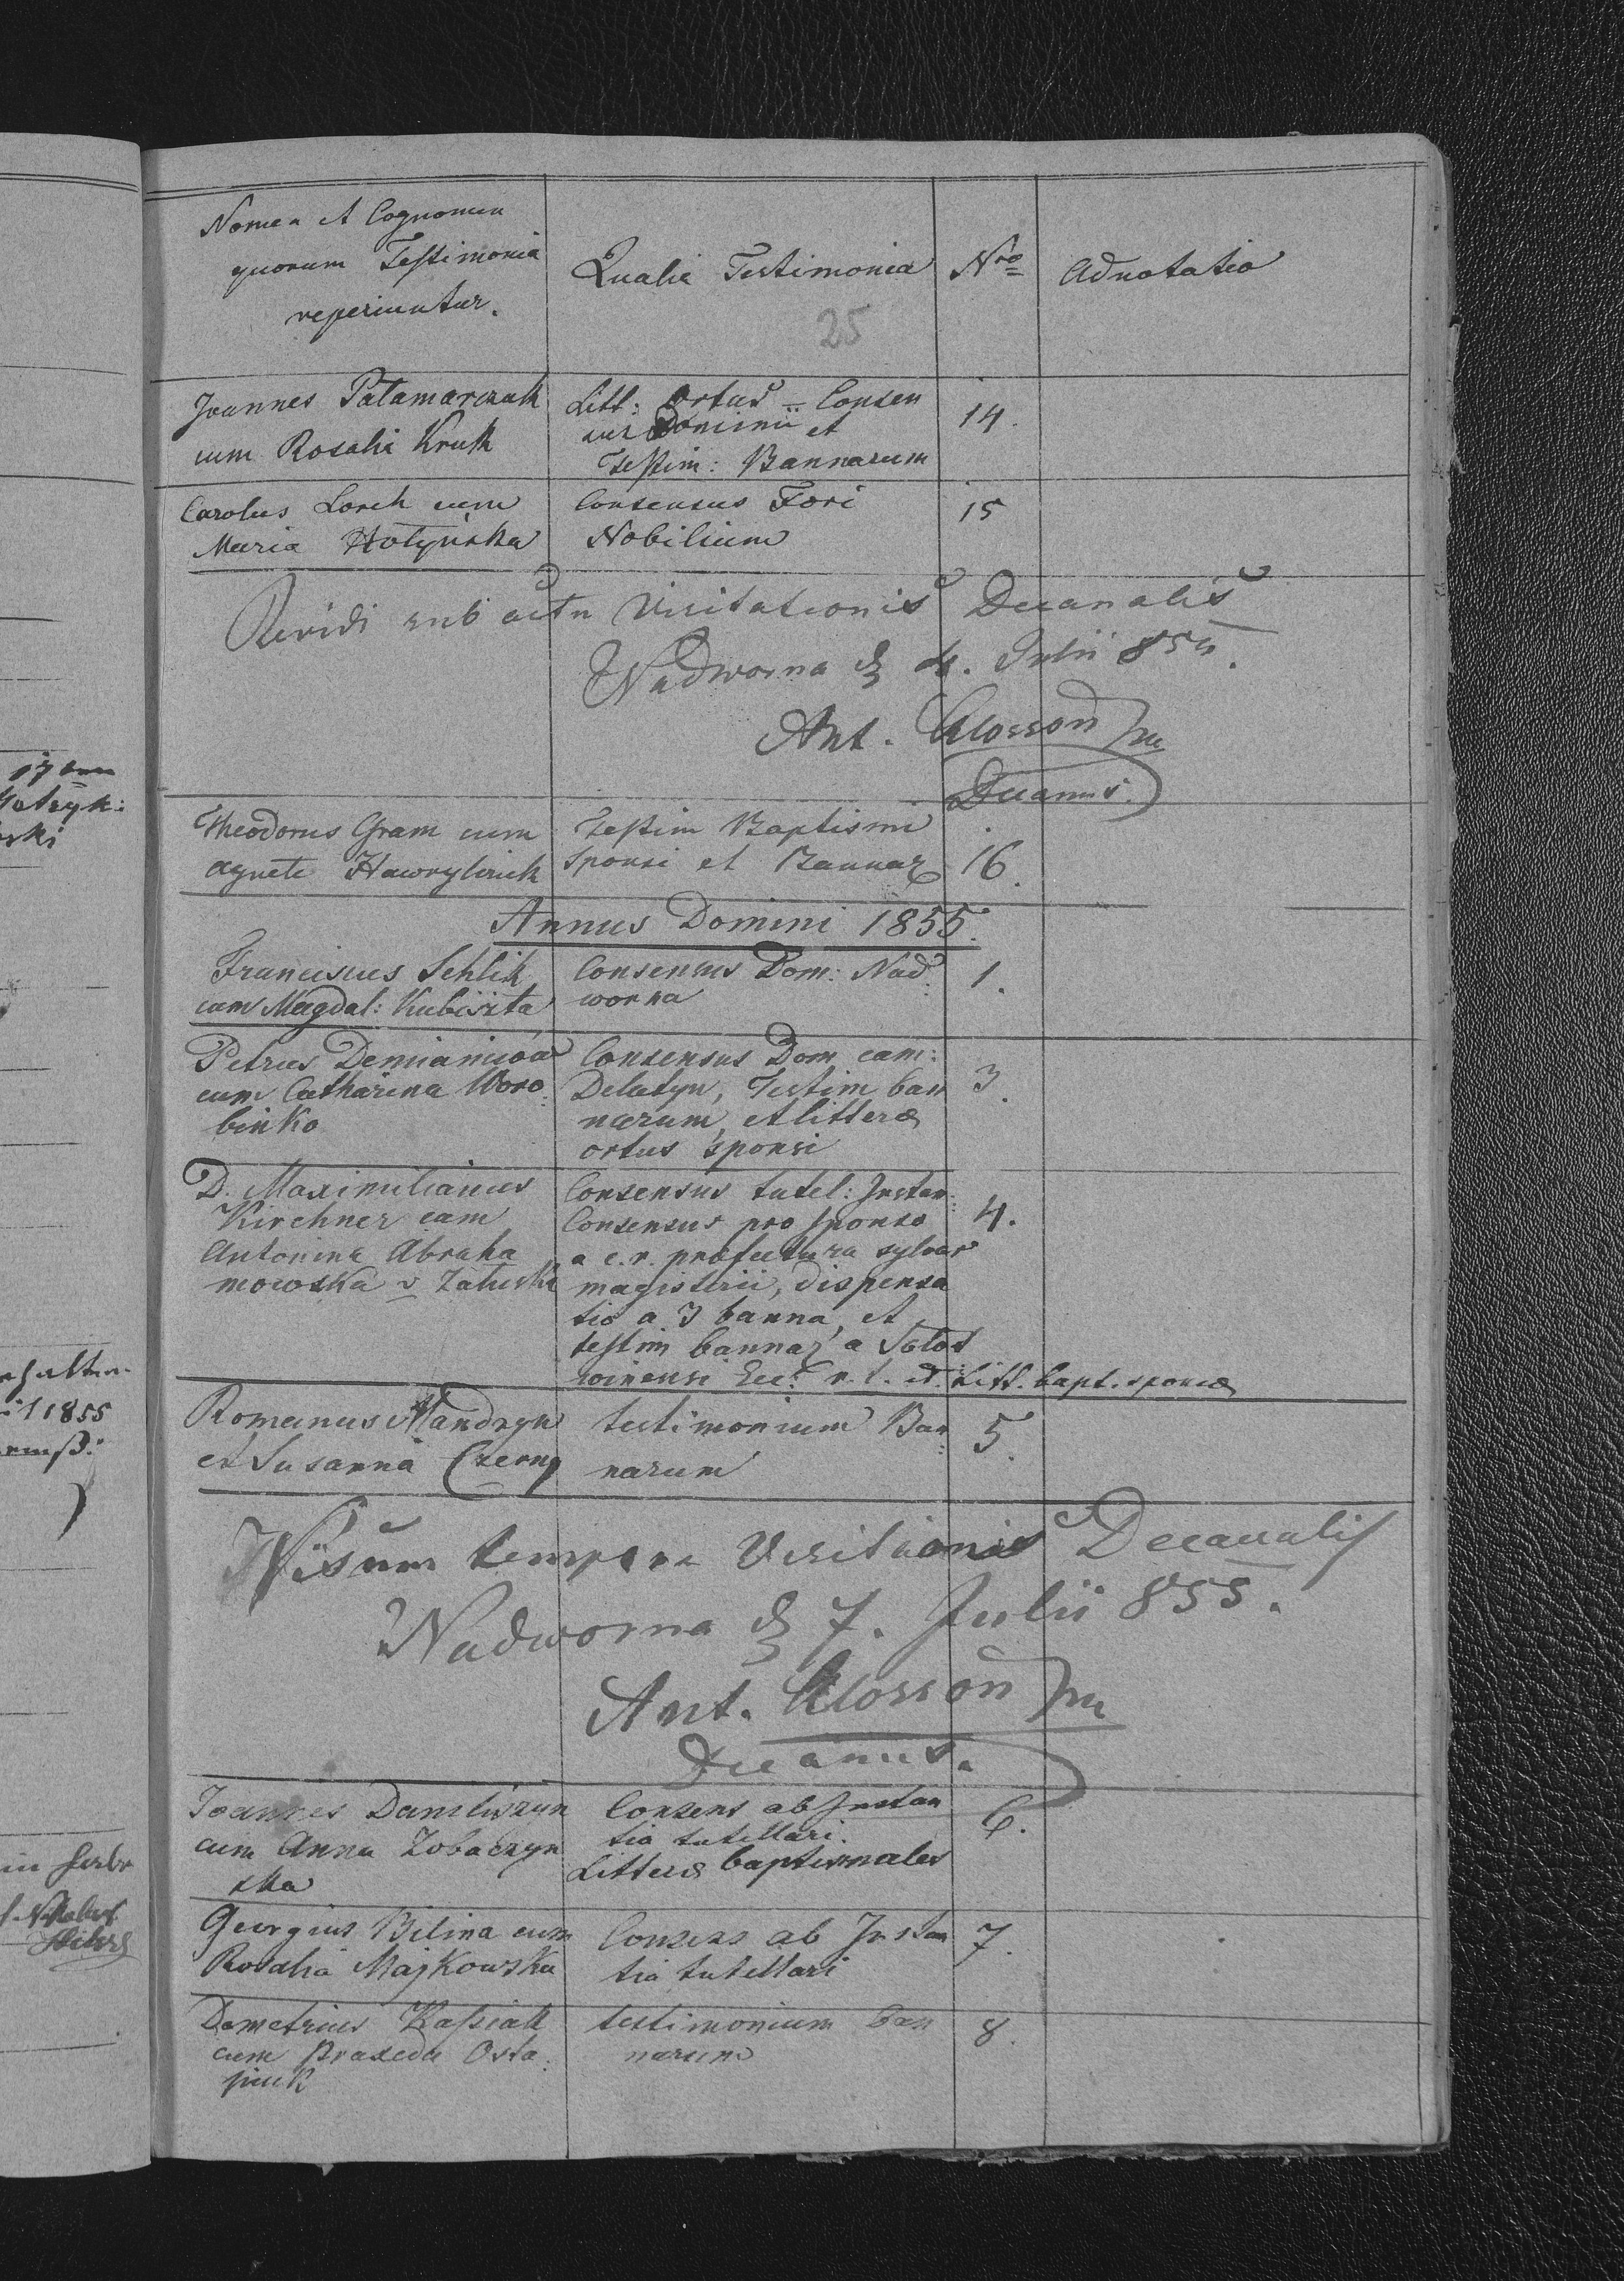 Nomen et Cognomen
quorum Testimonia
reperiuntur.
Qualia Testimonia
Nro
Adnotatio
25
Joannes Patamarczuk
cum Rosalia Kruk
Litt: Ortus = Consen
sus Dominii et
Testim: Bannarum
14.
Carolus Lorch cum
Maria Hotyńska
Consensus Fori
Nobilium
15
Revidi sub actu Visitationis Decanalis
Nadworna d 4. Julii 854.
Ant. Mosson mp
Decanus.
Theodorus Gram cum
Agnete Hawryluck
Testim Baptismi
Sponsi et Bannar
16.
Annus Domini 1855.
Franciscus Schlik
cum Magdal: Kubiszta
Consensus Dom: Nad
worna
1.
Petrus Demianiów
cum Catharina Woro
binko
Consensus Dom cam:
Delatyn, Testim ban
narum, et litteræ
ortus sponsi
3.
D. Maximilianus
Kirchner cum
Antonina Abraha
mowska v Załuska
Consensus tutel: Instan:
Consensus pro sponso
a c.r. præfectura sylvar
magisterii, dispensa
tio a 3 banna, et
testim bannar a Solot
winensi Ecc: r.l. et Litt. bapt. sponsæ
4.
Romanus Mandzyn
et Susanna Czerny
testimonium Ban
narum
5.
Visum tempore Visitationis Decanalis
Nadworna d 7. Julii 855.
Ant. Mosson mp
Decanus.
Joannes Daniliszyn
cum Anna Zobaczyn
ska
Consens ab Instan
tia tutellari.
Litteræ baptismales
6.
Georgius Bilina cum
Rosalia Majkowska
Consens ab Instan
tia tutellari
7.
Demetrius Kassiak
cum Praxeda Osta
piuk
testimonium ban
narum
8.